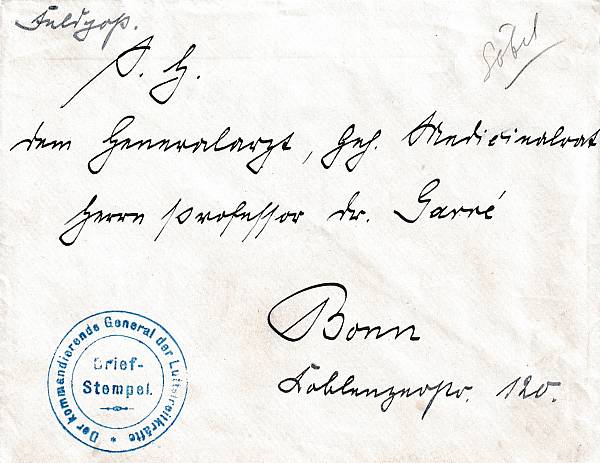 Feldpost.
S. H.
dem Generalarzt, Geh. Medicinalrat
Herrn Professor Dr. Garré
Bonn
Koblenzerstr. 120.
Der kommandierende General der Luftstreitkräfte *
Brief-
Stempel.